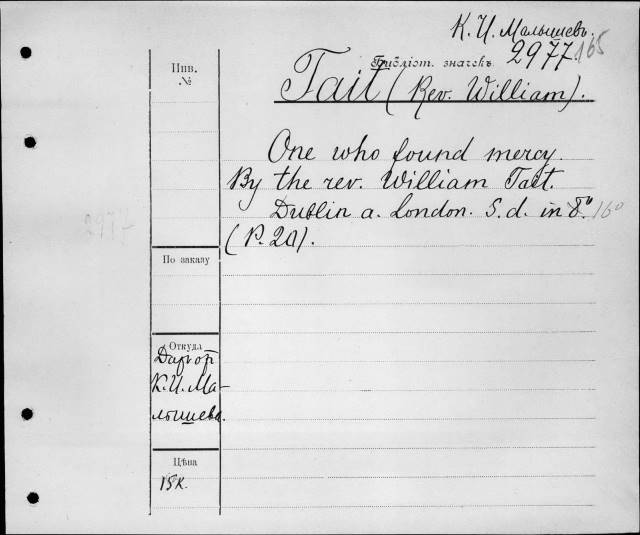 К. И. Малышевъ.
Библіот. значекъ 2977.165
Инв.
№
Tait (Rev. William).
One who found mercy.
By the rev. William Tait.
Dublin a. London. S. d. in 8.° 16°
(P. 20).
2977
По заказу
Откуда
Даръ от
К. И. Ма-
лышева.
Цѣна
15 к.